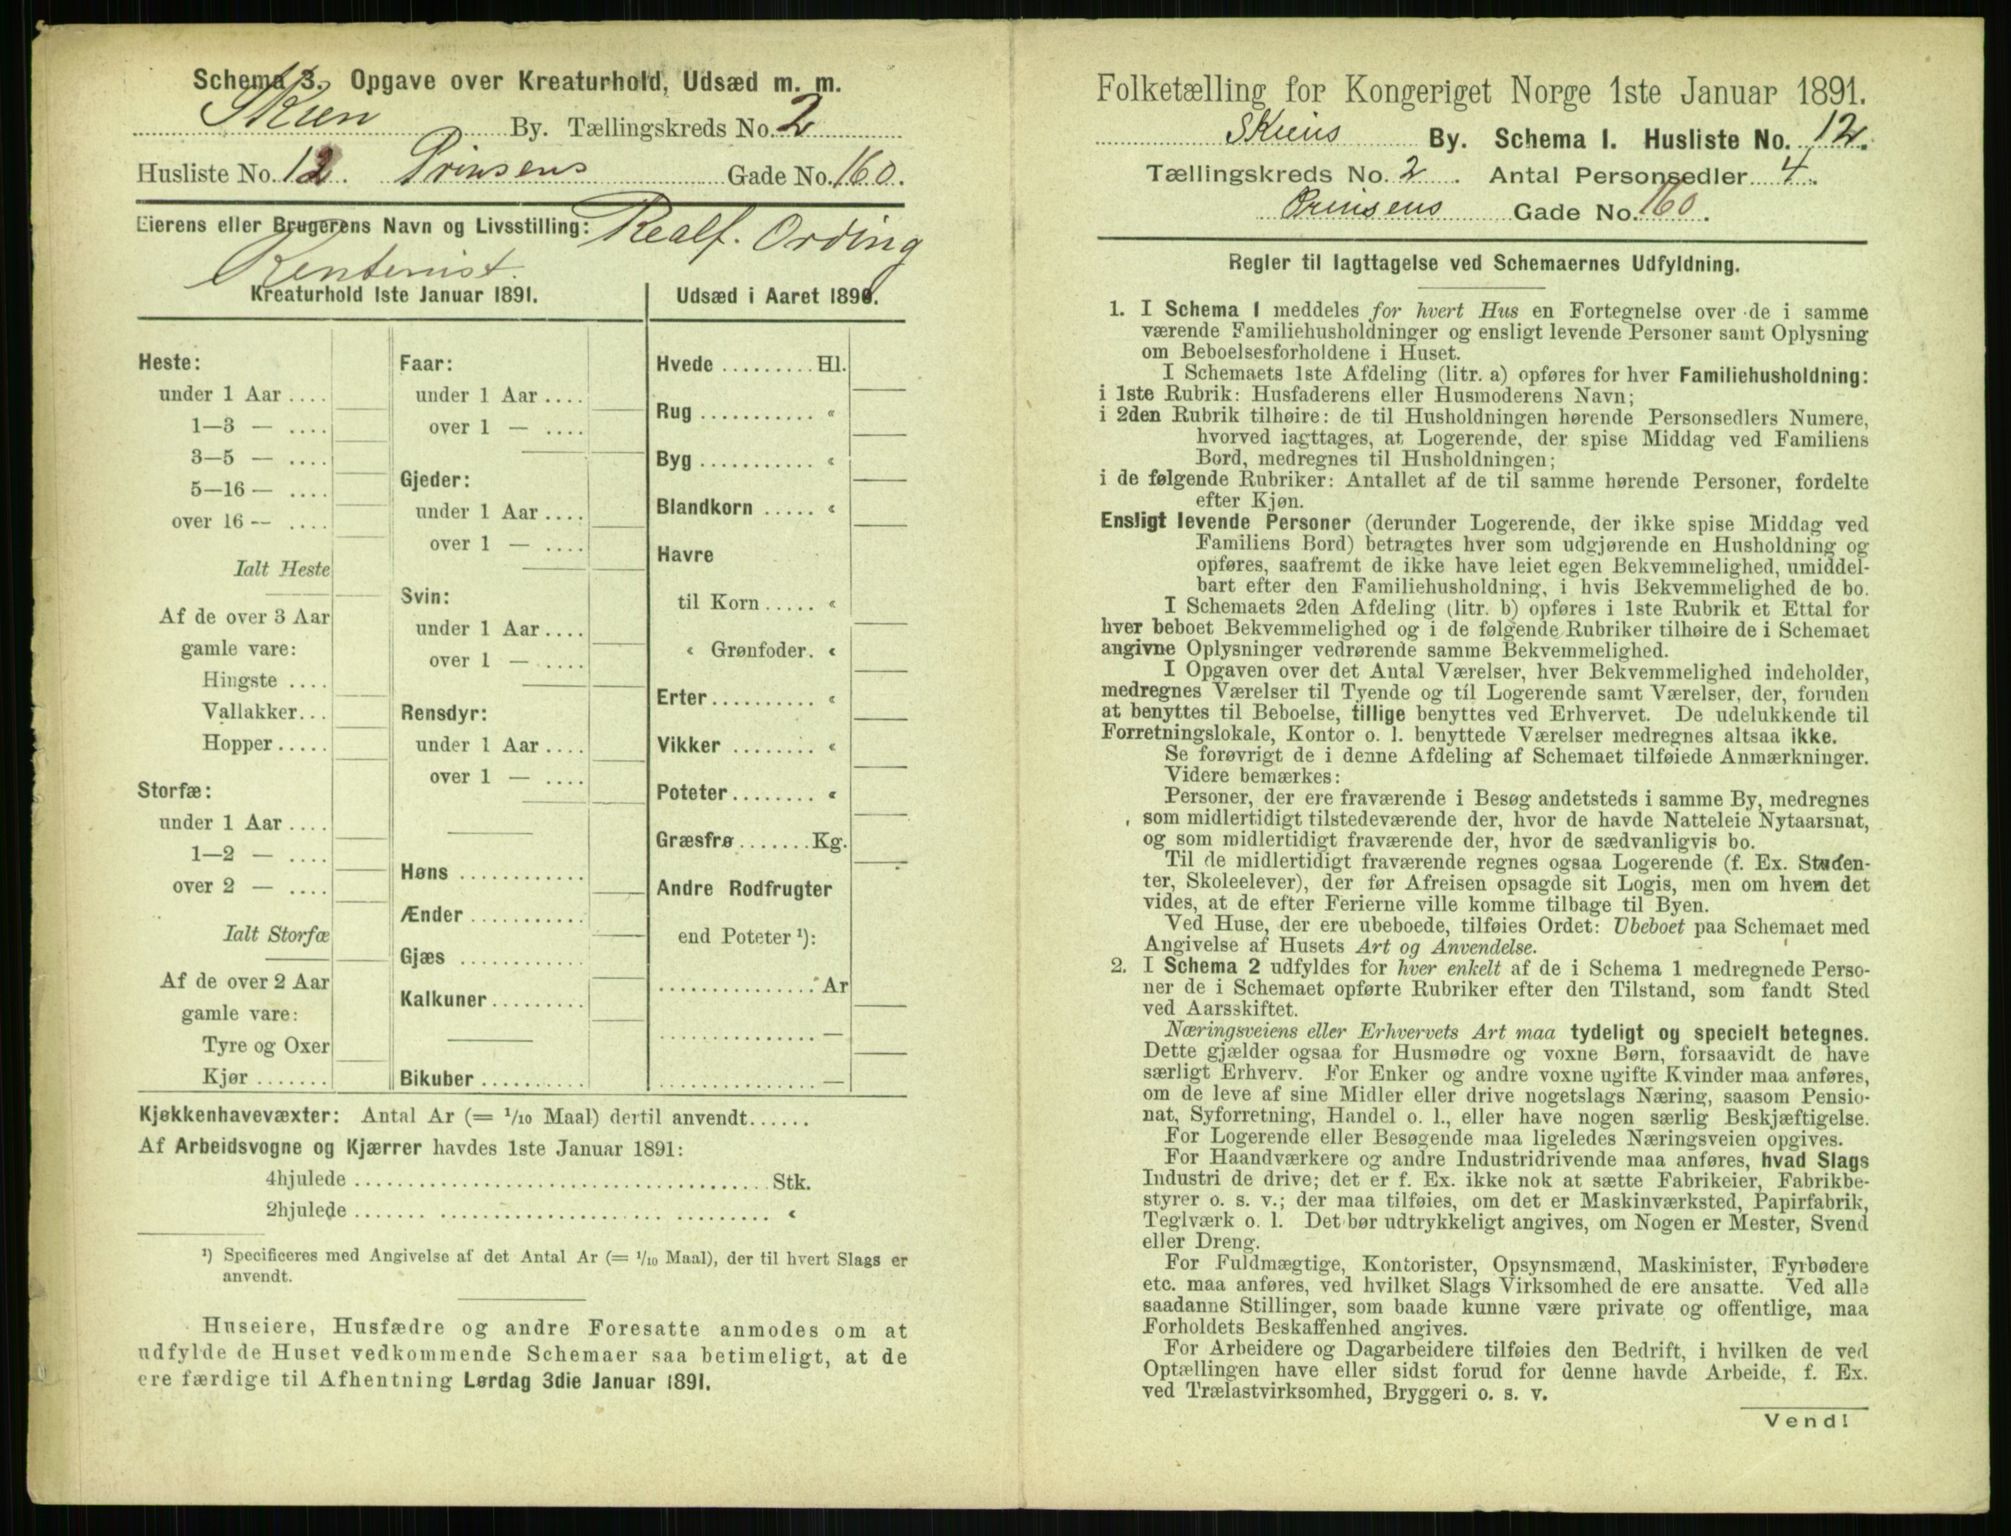 Schema 3. Opgave over Kreaturhold, Udsæd m. m.
Skien By. Tællingskreds No. 2
Husliste No. 12. Prinsens Gade No. 160.
Eierens eller Brugerens Navn og Livsstilling: Realf. Ording
Rentenist.
Kreaturhold 1ste Januar 1891.
Heste:
under 1 Aar ....
1—3 — ....
3—5 — ....
5—16 — ....
over 16 — ....
Ialt Heste
Af de over 3 Aar
gamle vare:
Hingste ....
Vallakker...
Hopper.....
Storfæ:
under 1 Aar....
1—2 — ....
over 2 — ....
Ialt Storfæ
Af de over 2 Aar
gamle vare:
Tyre og Oxer
Kjør.......
Faar:
under 1 Aar ....
over 1 — ....
Gjeder:
under 1 Aar ....
over 1 — ....
Svin:
under 1 Aar....
over 1 — ....
Rensdyr:
under 1 Aar....
over 1 — ....
Høns ............
Ænder...........
Gjæs ............
Kalkuner.........
Bikuber..........
Udsæd i Aaret 1890.
Hvede .........Hl.
Rug ........... «
Byg ........... «
Blandkorn ..... «
Havre
til Korn..... «
« Grønfoder. «
Erter.......... «
Vikker ........ «
Poteter........ «
Græsfrø.......Kg.
Andre Rodfrugter
end Poteter ¹):
...............Ar
...............—
...............—
Kjøkkenhavevæxter: Antal Ar (= 1/10 Maal) dertil anvendt......
Af Arbeidsvogne og Kjærrer havdes 1ste Januar 1891:
4hjulede .......................................Stk.
2hjulede ....... ..................... ......... «
¹) Specificeres med Angivelse af det Antal Ar (= 1/10 Maal), der til hvert Slags er
anvendt.
Huseiere, Husfædre og andre Foresatte anmodes om at
udfylde de Huset vedkommende Schemaer saa betimeligt, at de
ere færdige til Afhentning Lørdag 3die Januar 1891.
Folketælling for Kongeriget Norge 1ste Januar 1891.
Skiens By. Schema I. Husliste No. 12.
Tællingskreds No. 2. Antal Personsedler 4.
Prinsens Gade No. 160.
Regler til Iagttagelse ved Schemaernes Udfyldning.
1. I Schema 1 meddeles for hvert Hus en Fortegnelse over de i samme
værende Familiehusholdninger og ensligt levende Personer samt Oplysning
om Beboelsesforholdene i Huset.
I Schemaets 1ste Afdeling (litr. a) opføres for hver Familiehusholdning:
i 1ste Rubrik: Husfaderens eller Husmoderens Navn;
i 2den Rubrik tilhøire: de til Husholdningen hørende Personsedlers Numere,
hvorved iagttages, at Logerende, der spise Middag ved Familiens
Bord, medregnes til Husholdningen;
i de følgende Rubriker: Antallet af de til samme hørende Personer, fordelte
efter Kjøn.
Ensligt levende Personer (derunder Logerende, der ikke spise Middag ved
Familiens Bord) betragtes hver som udgjørende en Husholdning og
opføres, saafremt de ikke have leiet egen Bekvemmelighed, umiddel-
bart efter den Familiehusholdning, i hvis Bekvemmelighed de bo.
I Schemaets 2den Afdeling (litr. b) opføres i 1ste Rubrik et Ettal for
hver beboet Bekvemmelighed og i de følgende Rubriker tilhøire de i Schemaet
angivne Oplysninger vedrørende samme Bekvemmelighed.
I Opgaven over det Antal Værelser, hver Bekvemmelighed indeholder,
medregnes Værelser til Tyende og til Logerende samt Værelser, der, foruden
at benyttes til Beboelse, tillige benyttes ved Erhvervet. De udelukkende til
Forretningslokale, Kontor o. l. benyttede Værelser medregnes altsaa ikke.
Se forøvrigt de i denne Afdeling af Schemaet tilføiede Anmærkninger.
Videre bemærkes:
Personer, der ere fraværende i Besøg andetsteds i samme By, medregnes
som midlertidigt tilstedeværende der, hvor de havde Natteleie Nytaarsnat,
og som midlertidigt fraværende der, hvor de sædvanligvis bo.
Til de midlertidigt fraværende regnes ogsaa Logerende (f. Ex. Studen-
ter, Skoleelever), der før Afreisen opsagde sit Logis, men om hvem det
vides, at de efter Ferierne ville komme tilbage til Byen.
Ved Huse, der ere ubeboede, tilføies Ordet: Ubeboet paa Schemaet med
Angivelse af Husets Art og Anvendelse.
2. I Schema 2 udfyldes for hver enkelt af de i Schema 1 medregnede Perso-
ner de i Schemaet opførte Rubriker efter den Tilstand, som fandt Sted
ved Aarsskiftet.
Næringsveiens eller Erhvervets Art maa tydeligt og specielt betegnes.
Dette gjælder ogsaa for Husmødre og voxne Børn, forsaavidt de have
særligt Erhverv. For Enker og andre voxne ugifte Kvinder maa anføres,
om de leve af sine Midler eller drive nogetslags Næring, saasom Pensio-
nat, Syforretning, Handel o. l., eller have nogen særlig Beskjæftigelse.
For Logerende eller Besøgende maa ligeledes Næringsveien opgives.
For Haandværkere og andre Industridrivende maa anføres, hvad Slags
Industri de drive; det er f. Ex. ikke nok at sætte Fabrikeier, Fabrikbe-
styrer o. s. v.; der maa tilføies, om det er Maskinværksted, Papirfabrik,
Teglværk o. l. Det bør udtrykkeligt angives, om Nogen er Mester, Svend
eller Dreng.
For Fuldmægtige, Kontorister, Opsynsmænd, Maskinister, Fyrbødere
etc. maa anføres, ved hvilket Slags Virksomhed de ere ansatte. Ved alle
saadanne Stillinger, som baade kunne være private og offentlige, maa
Forholdets Beskaffenhed angives.
For Arbeidere og Dagarbeidere tilføies den Bedrift, i hvilken de ved
Optællingen have eller sidst forud for denne havde Arbeide, f. Ex.
ved Trælastvirksomhed, Bryggeri o. s. v.
Vend!